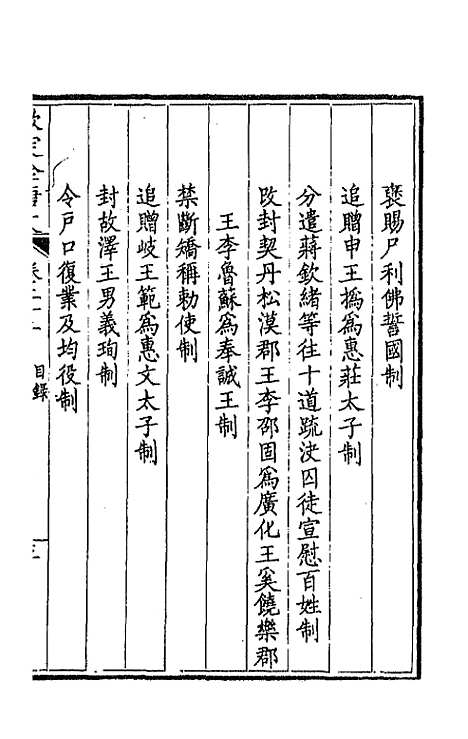 褒賜尸利佛誓國制
追贈申王撝爲惠莊太子制
分遣蔣欽緒等往十道疏決囚徒宣慰百姓制
改封契丹松漠郡王李邵固爲廣化王奚饒樂郡
王李魯蘇爲奉誠王制
禁斷矯稱勅使制
追贈岐王範爲惠文太子制
封故澤王男義珣制
令戶口復業及均役制
目錄